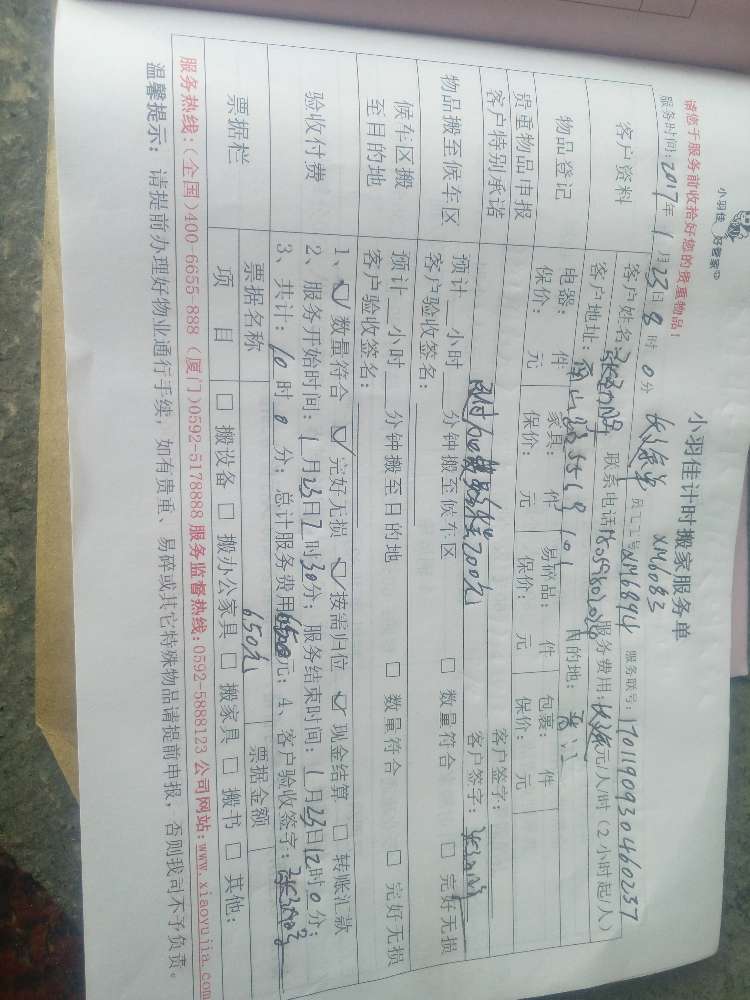 小羽佳 好管家
小羽佳计时搬家服务单
请您于服务前收拾好您的贵重物品！
XM6083
服务时间：2017年1月23日8时0分 员工工号：XM6894 服务联号：17011909304460237
客户资料 客户姓名： 联系电话 服务费用： 元/人/时（2小时起/人）
客户地址： 目的地：
物品登记 电器： 件 家具： 件 易碎品： 件 包裹： 件
保价： 元 保价： 元 保价： 元 保价： 元
贵重物品申报 客户签字：
客户特别承诺 200元 客户签字：
物品搬至候车区 预计 小时 分钟搬至候车区 □ 数量符合 □ 完好无损
客户验收签名：
候车区搬至目的地 预计 小时 分钟搬至目的地 □ 数量符合 □ 完好无损
客户验收签名：
验收付费 1、☑ 数量符合 ☑ 完好无损 ☑ 按需归位 ☑ 现金结算 □ 转账汇款
2、服务开始时间：1月23日7时30分；服务结束时间：1月23日12时0分；
3、共计：10时0分；总计服务费用650元；4、客户验收签字：
650元
票据栏 票据名称 票据金额
项 目 □ 搬设备 □ 搬办公家具 □ 搬家具 □ 搬书 □ 其他：
服务热线：(全国)400-6655-888（厦门)0592-5178888 服务监督热线:0592-5888123 公司网站:www.xiaoyujia.com
温馨提示：请提前办理好物业通行手续，如有贵重、易碎或其它特殊物品请提前申报，否则我司不予负责。